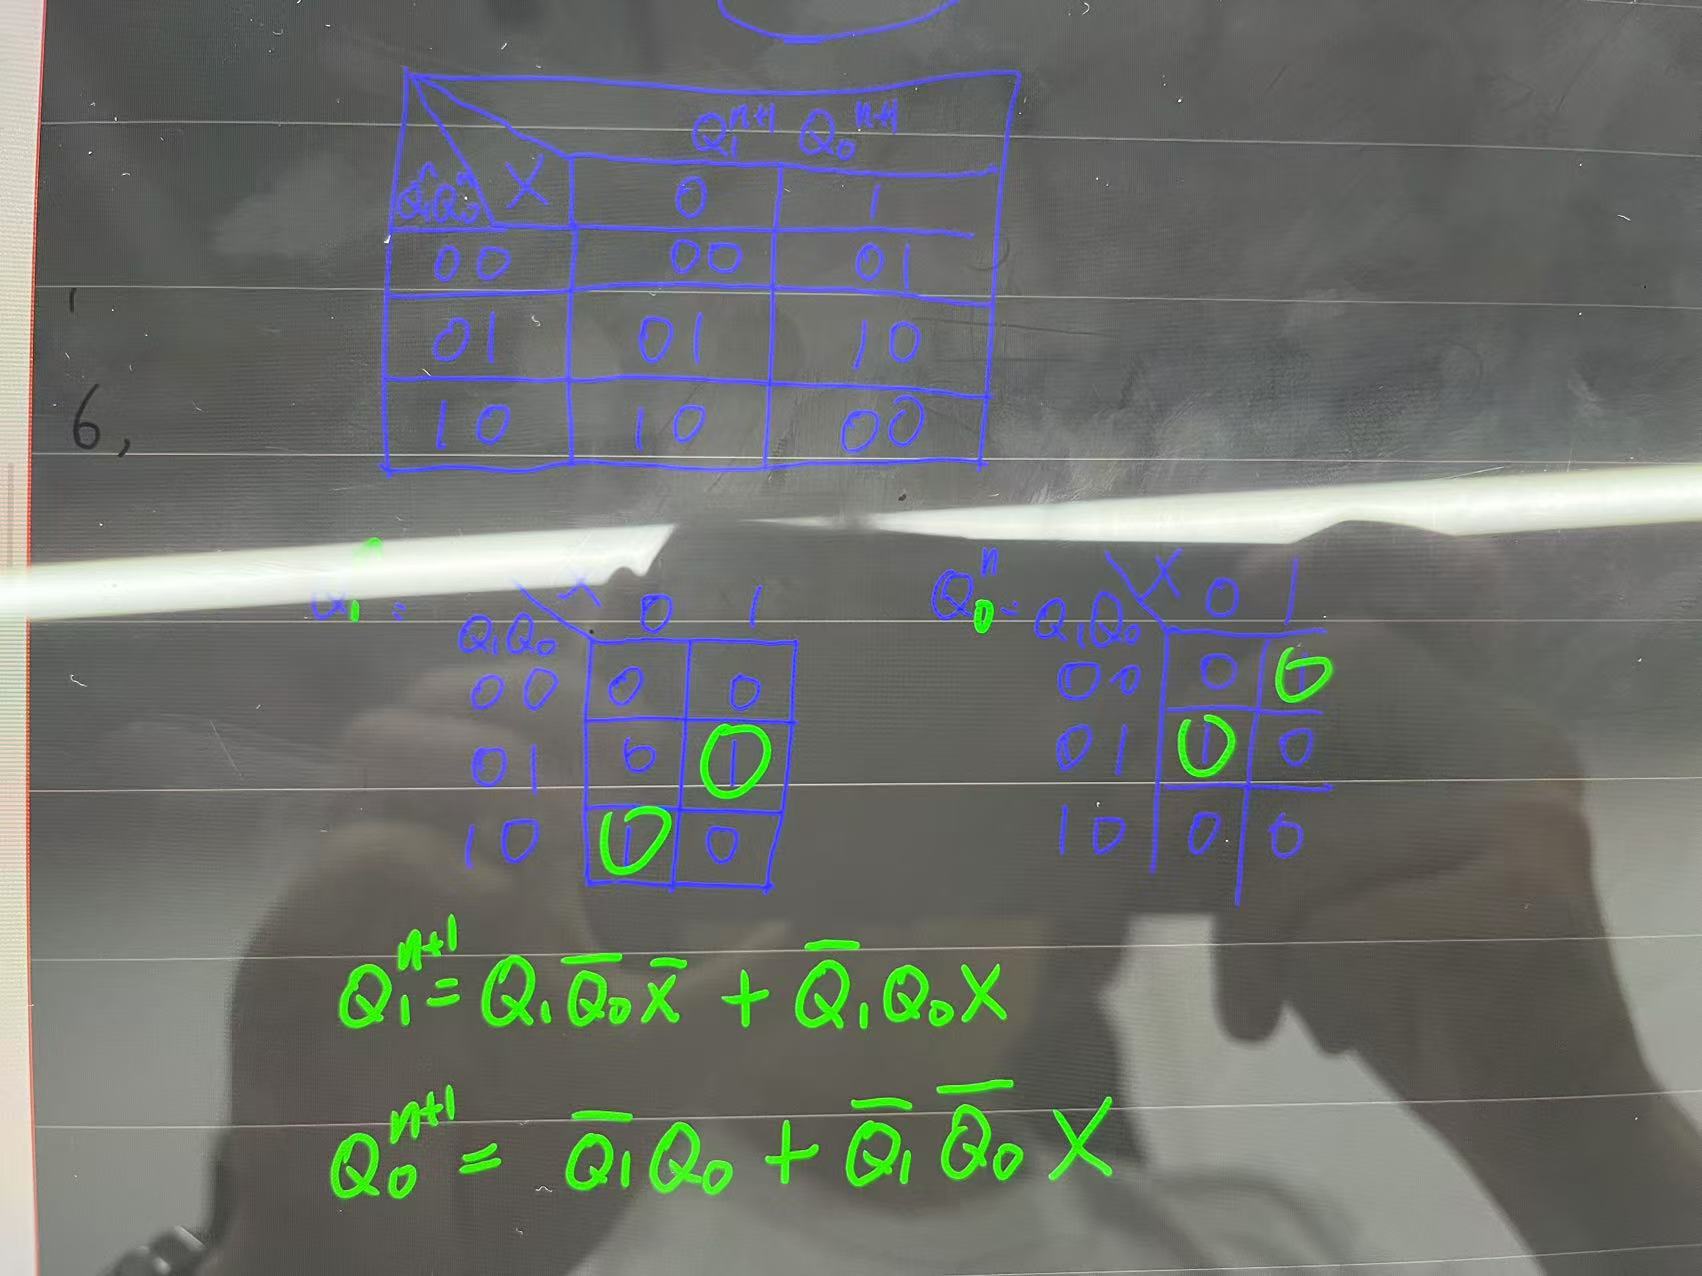 Q₁ⁿ⁺¹ Q₀ⁿ⁺¹
Q₁ⁿQ₀ⁿ X 0 1
00 00 01
01 01 10
10 10 00
6,
Q₁ = Q₁Q₀ X 0 1
00 0 0
01 0 1
10 1 0
Q₀ⁿ = Q₁Q₀ X 0 1
00 0 1
01 1 0
10 0 0
Q₁ⁿ⁺¹ = Q₁Q̅₀x̅ + Q̅₁Q₀X
Q₀ⁿ⁺¹ = Q̅₁Q₀ + Q̅₁Q̅₀X